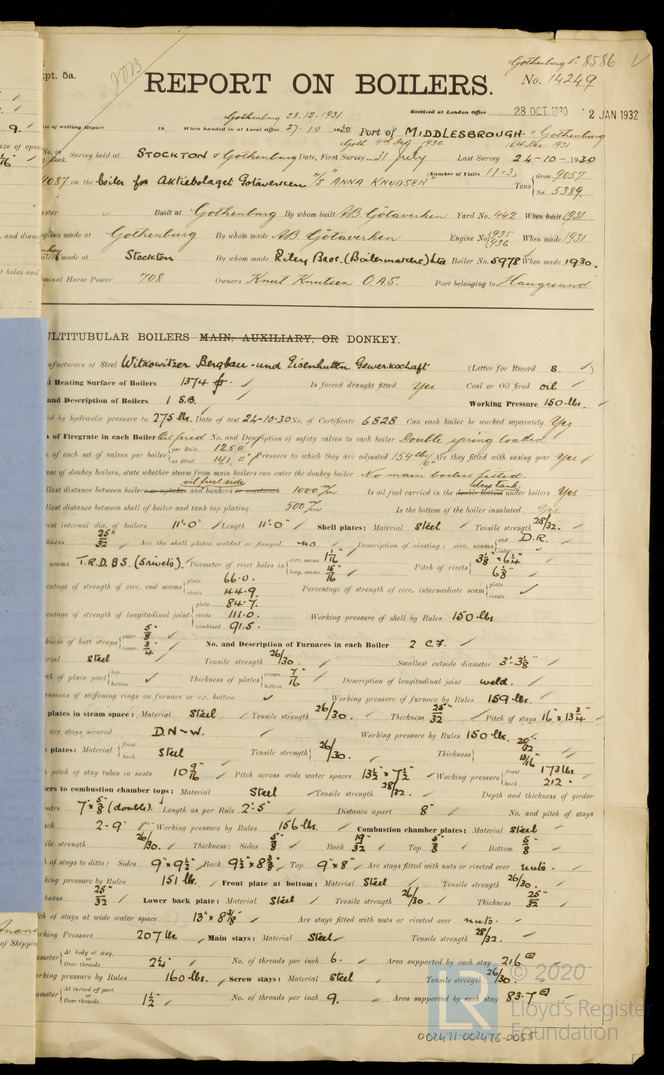 Gothenburg No 8586
pt. 5a.
REPORT ON BOILERS.
No. 14249
Received at London Office 28 OCT 1930 2 JAN 1932
Gothenburg 28.12.1931.
of writing Report 19 When handed in at Local Office 27.10.1930 Port of MIDDLESBROUGH & Gothenburg
No. in Survey held at STOCKTON & Gothenburg Date, First Survey 31 July Last Survey 24-10-1930
4087 on the boiler for Aktiebolaget Götaverken M/S "ANNA KNUDSEN" (Number of Visits 11-3) Tons Gross 9057 Net 5389
Built at Gothenburg By whom built AB Götaverken Yard No. 442 When built 1931
Engines made at Gothenburg By whom made AB Götaverken Engine No. 1935 1936 When made 1931
made at Stockton By whom made Riley Bros. (Boilermakers) Ltd Boiler No. 5978 When made 1930.
Nominal Horse Power 708 Owners Knut Knutsen O.A.S. Port belonging to Haugesund
MULTITUBULAR BOILERS MAIN, AUXILIARY, OR DONKEY.
Manufacturers of Steel Witkowitzer Bergbau-und Eisenhutten Gewerkschaft (Letter for Record S. )
Heating Surface of Boilers 1374 Is forced draught fitted Yes Coal or Oil fired oil
and Description of Boilers 1 S.B. Working Pressure 150 lbs.
by hydraulic pressure to 275 lbs. Date of test 24-10-30 No. of Certificate 6828 Can each boiler be worked separately Yes
of Firegrate in each Boiler Oil fired No. and Description of safety valves to each boiler Double spring loaded
of each set of valves per boiler per Rule 12.5 as fitted 14.1 Pressure to which they are adjusted 154 lbs Are they fitted with easing gear Yes
case of donkey boilers, state whether steam from main boilers can enter the donkey boiler No main boilers fitted.
Smallest distance between boilers or uptakes and bunkers or woodwork oil fuel side 1000 m/m Is oil fuel carried in the double bottom under boilers deep tank Yes
Smallest distance between shell of boiler and tank top plating 500 m/m Is the bottom of the boiler insulated Yes
Largest internal dia. of boilers 11'-0" Length 11'-0" Shell plates: Material Steel Tensile strength 28/32.
Thickness 25/32" Are the shell plates welded or flanged no Description of riveting: circ. seams end D.R. inter.
seams T.R.D.B.S. (5 rivets). Diameter of rivet holes in circ. seams 1 1/16" long. seams 15/16" Pitch of rivets 3 3/8" & 6 1/4" 6 1/8"
Percentage of strength of circ. end seams plate 66.0. rivets 44.9. Percentage of strength of circ. intermediate seam plate rivets
Percentage of strength of longitudinal joint plate 84.7. rivets 111.0. combined 91.5. Working pressure of shell by Rules 150 lbs
Thickness of butt straps outer 5/8" inner 3/4" No. and Description of Furnaces in each Boiler 2 C.F.
Material Steel Tensile strength 26/30. Smallest outside diameter 3'-3 3/8"
Length of plain part top bottom Thickness of plates crown bottom 7/16" Description of longitudinal joint weld.
Dimensions of stiffening rings on furnace or c.c. bottom Working pressure of furnace by Rules 159 lbs.
plates in steam space: Material Steel Tensile strength 26/30. Thickness 25/32" Pitch of stays 16" x 13 3/4"
are stays secured D.N-W. Working pressure by Rules 150 lbs.
plates: Material front back Steel Tensile strength 26/30. Thickness 25/32" 13/16"
pitch of stay tubes in nests 10 9/16" Pitch across wide water spaces 13 1/2" x 7 1/2" Working pressure front 173 lbs back 212"
Girders to combustion chamber tops: Material Steel Tensile strength 28/32. Depth and thickness of girder
centre 7" x 5/8" (double). Length as per Rule 2'-5" Distance apart 8" No. and pitch of stays
2-9" Working pressure by Rules 156 lbs. Combustion chamber plates: Material Steel
Tensile strength 26/30. Thickness: Sides 5/8" Back 19/32" Top 5/8" Bottom 5/8"
of stays to ditto: Sides 9" x 9 1/2" Back 9 1/2" x 8 3/8" Top 9" x 8" Are stays fitted with nuts or riveted over nuts.
Working pressure by Rules 151 lbs. Front plate at bottom: Material Steel Tensile strength 26/30.
Thickness 25/32" Lower back plate: Material Steel Tensile strength 26/30. Thickness 25/32"
Pitch of stays at wide water space 13" x 8 3/8" Are stays fitted with nuts or riveted over nuts.
Working Pressure 207 lbs. Main stays: Material Steel Tensile strength 28/32.
Diameter At body of stay, or Over threads 2 1/4" No. of threads per inch 6. Area supported by each stay 216
Working pressure by Rules 160 lbs. Screw stays: Material Steel Tensile strength 26/30.
Diameter At turned off part, or Over threads 1 1/2" No. of threads per inch 9. Area supported by each stay 83.7
© 2020
LR
Lloyd's Register
Foundation
002471-002476-0055